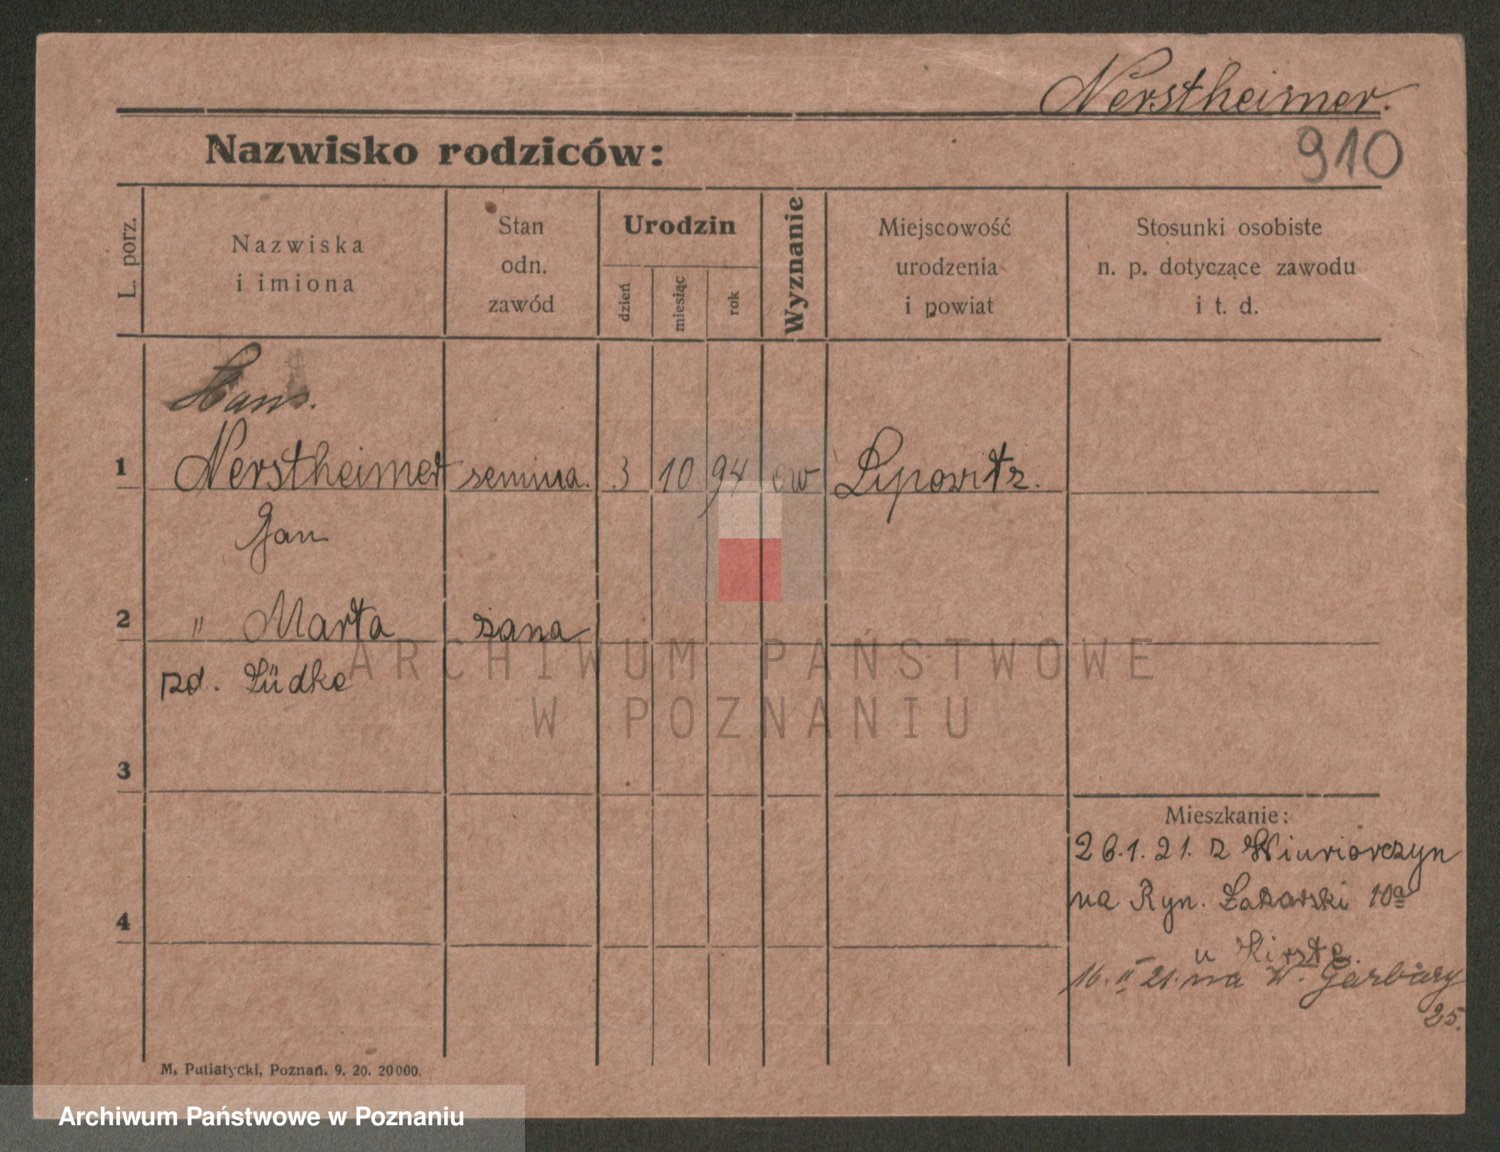 Nerstheimer.
910
Nazwisko rodziców:
L. porz.
Nazwiska
i imiona
Stan
odn.
zawód
Urodzin
dzień
miesiąc
rok
Wyznanie
Miejscowość
urodzenia
i powiat
Stosunki osobiste
n. p. dotyczące zawodu
i t. d.
Hans.
1 Nerstheimer 3 10 94 ew Lipowitz.
Jan
2 " Marta żona
zd. Lüdke
3
4
Mieszkanie:
26.1.21. z
na Ryn. Łazarski 10a
u
16.II 21. na W. Garbary
25.
M. Putiatycki, Poznań. 9. 20. 20000.
ARCHIWUM PAŃSTWOWE
W POZNANIU
Archiwum Państwowe w Poznaniu